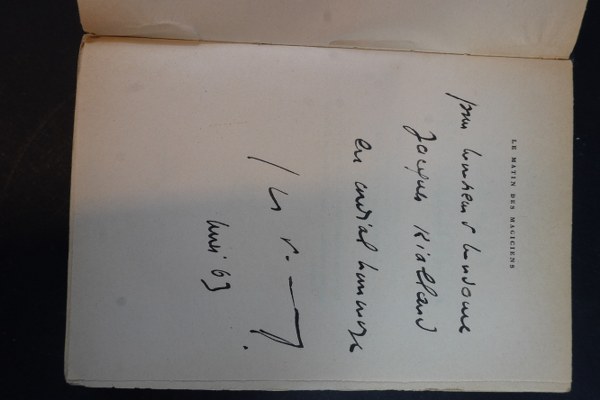 LE MATIN DES MAGICIENS
pour Monsieur & Madame
Jacques Rialland
en cordial hommage
63